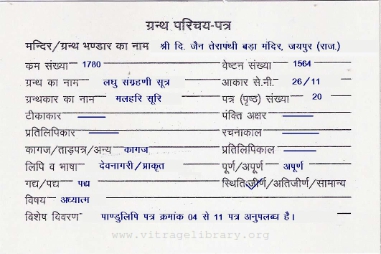 ग्रन्थ परिचय-पत्र
मन्दिर/ग्रन्थ भण्डार का नाम श्री दि. जैन तेरापंथी बड़ा मंदिर, जयपुर (राज.)
क्रम संख्या 1780 वेष्टन संख्या 1564
ग्रन्थ का नाम लघु संग्रहणी सूत्र आकार से.मी. 26/11
ग्रन्थकार का नाम मलहरि सूरि पत्र (पृष्ठ) संख्या 20
टीकाकार — पंक्ति अक्षर —
प्रतिलिपिकार — रचनाकाल —
कागज/ताड़पत्र/अन्य कागज प्रतिलिपिकाल —
लिपि व भाषा देवनागरी/प्राकृत पूर्ण/अपूर्ण अपूर्ण
गद्य/पद्य पद्य स्थिति जीर्ण/अतिजीर्ण/सामान्य
विषय अध्यात्म
विशेष विवरण पाण्डुलिपि पत्र क्रमांक 04 से 11 पत्र अनुपलब्ध है।
www.vitragelibrary.org